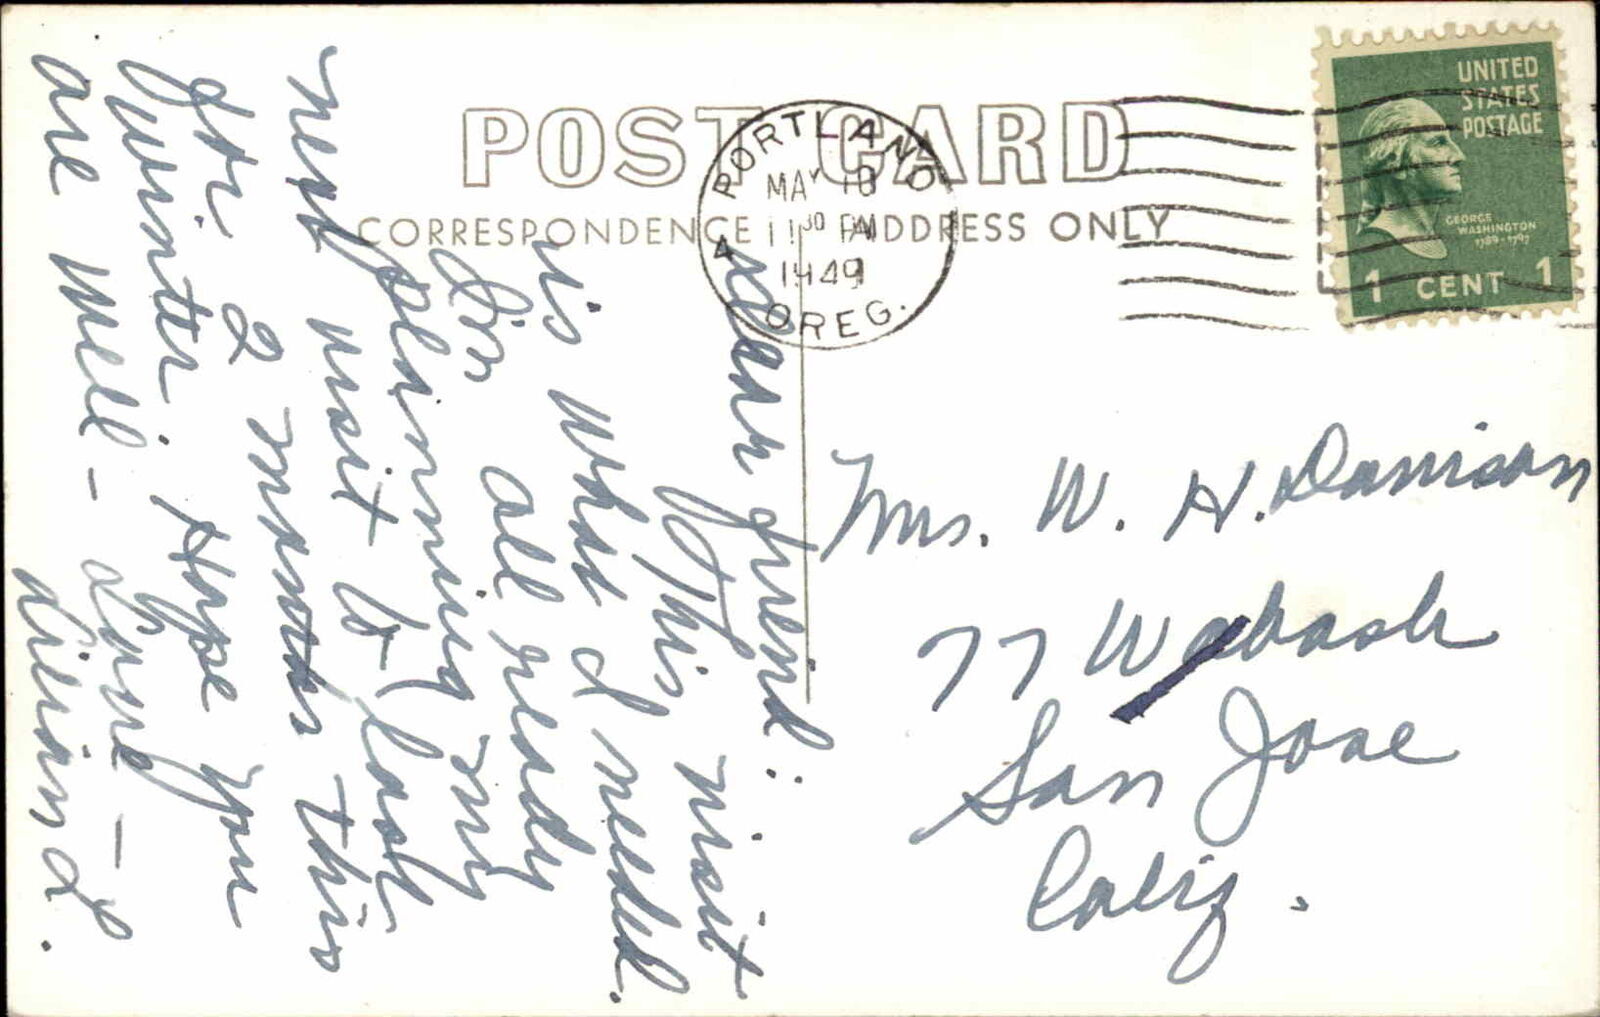 POST CARD
CORRESPONDENCE
ADDRESS ONLY
PORTLAND
4
MAY 10
11 30 PM
1949
OREG.
UNITED
STATES
POSTAGE
GEORGE
WASHINGTON
1789-1797
1 CENT 1
Dear friend:
This visit
is what I needed.
I'm all ready
planning my
next visit to last
for 2 months this
winter. Hope you
are well - Love -
Lillian L.
Mrs. W. H. Danison
77 Wabash
San Jose
Calif.